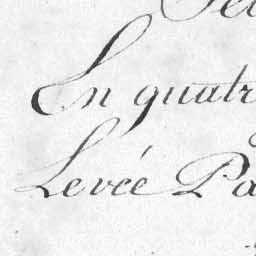 En quatr
Levée Pa